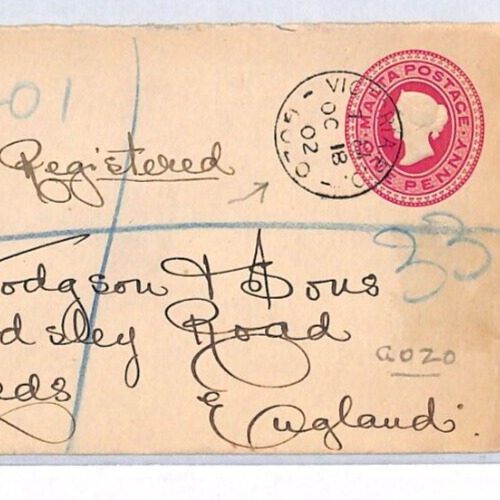 MALTA POSTAGE
ONE PENNY
VICTORIA
OC 18
02
GOZO
01
Registered
33
odgson & Sons
dsley Road
GOZO
eds England.